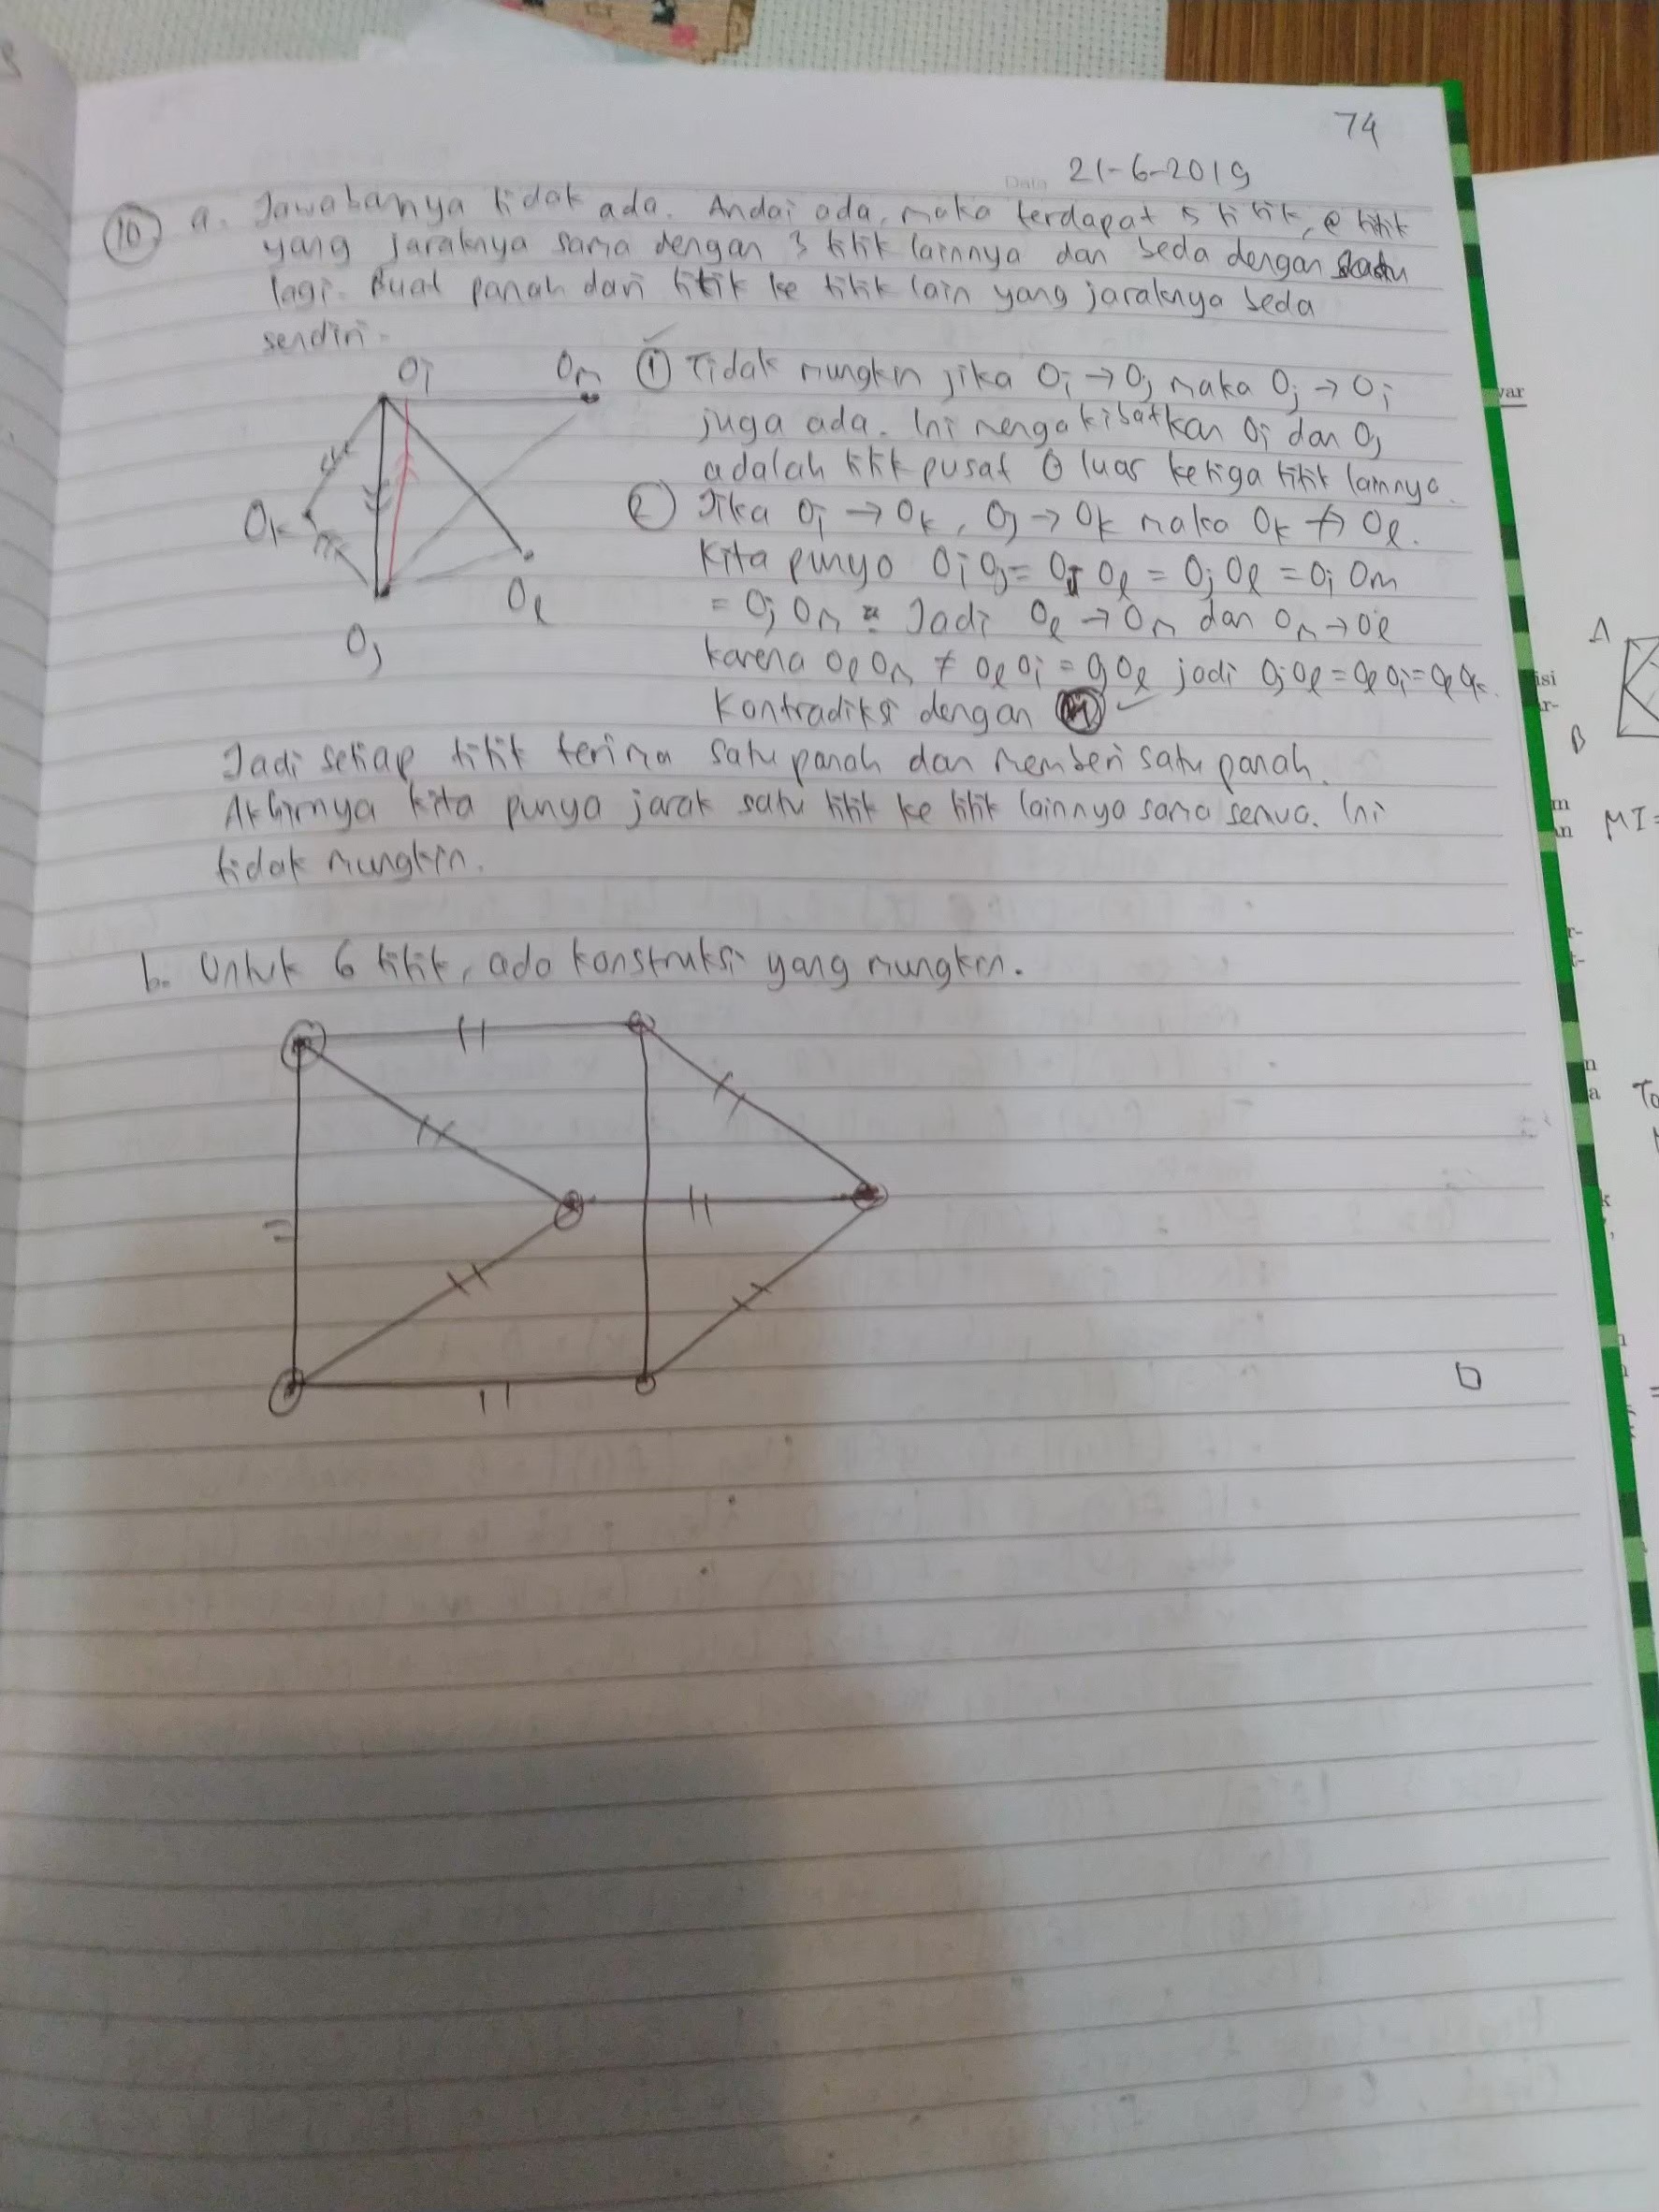 74
Date 21-6-2019
10 a. Jawabanya tidak ada. Andai ada, maka terdapat 5 titik, titik
yang jaraknya sama dengan 3 titik lainnya dan beda dengan satu
lagi. Buat panah dari titik ke titik lain yang jaraknya beda
sendiri.
Oi Om
Ok
Ol
Oj
① Tidak mungkin jika Oi → Oj maka Oj → Oi
juga ada. Ini mengakibatkan Oi dan Oj
adalah titik pusat ⊙ luar ketiga titik lainnya.
② Jika Oi → Ok, Oj → Ok maka Ok ↛ Ol.
Kita punya OiOj = OiOl = OjOl = OiOm
= OjOm. Jadi Ol → Om dan Om → Ol
karena OlOm ≠ OlOi = OjOl jadi OjOl = OlOi = OlOk.
Kontradiksi dengan
Jadi setiap titik terima satu panah dan memberi satu panah.
Akhirnya kita punya jarak satu titik ke titik lainnya sama semua. Ini
tidak mungkin.
b. Untuk 6 titik, ada konstruksi yang mungkin.
var
A
isi
r-
B
m
n
MI=
r-
t-
n
a
To
k